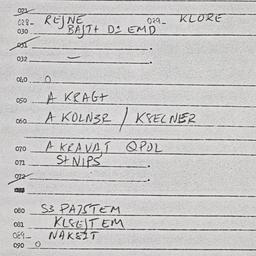 021
028- REJNE 029- KLORE
030 BAJT+ D: EMD
031
032 —
040 O
050 A KRAGT
060 A KOLN3R / KSELNER
070 A KRAVAT QPOL
071 S+NIPS
072
080 S3 PA7STEM
081 KLSEJTEM
089- NAKEIT
090 O